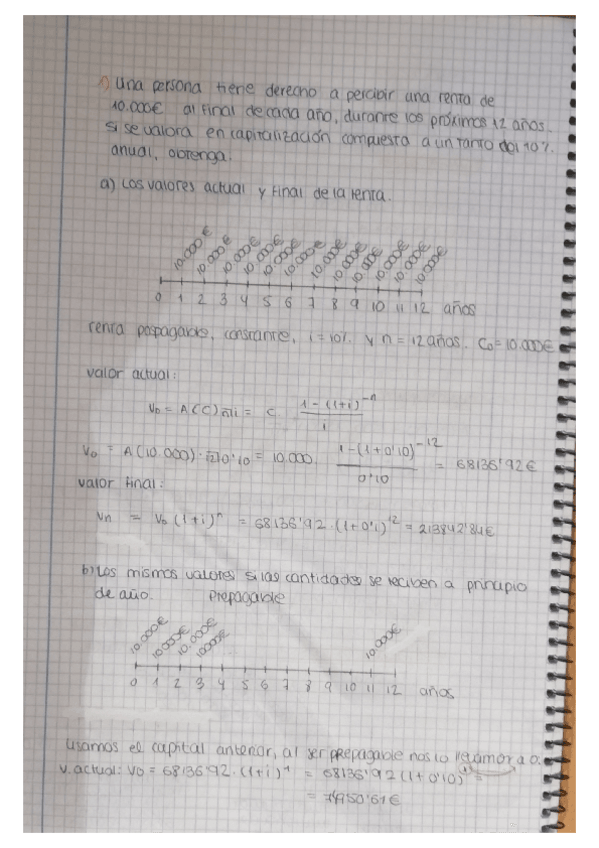 1) Una persona tiene derecho a percibir una renta de
10.000€ al final de cada año, durante los próximos 12 años.
si se valora en capitalización compuesta a un tanto del 10%
anual, obtenga.
a) Los valores actual y final de la renta.
10.000€ 10.000€ 10.000€ 10.000€ 10.000€ 10.000€ 10.000€ 10.000€ 10.000€ 10.000€ 10.000€ 10.000€
0 1 2 3 4 5 6 7 8 9 10 11 12 años
renta pospagable, constante, i = 10% y n = 12 años. C0 = 10.000€
valor actual:
V0 = A(C)n̅|i = C. 1 - (1+i)^-n / i
V0 = A(10.000).1̅2̅|0'10 = 10.000. 1 - (1+0'10)^-12 / 0'10 = 68136'92€
valor final:
Vn = V0 (1+i)^n = 68136'92 . (1+0'1)^12 = 213842'84€
b) Los mismos valores si las cantidades se reciben a principio
de año. Prepagable
10.000€ 10.000€ 10.000€ 10.000€ 10.000€
0 1 2 3 4 5 6 7 8 9 10 11 12 años
usamos el capital anterior, al ser prepagable nos lo a 0.
V. actual: V0 = 68136'92 . (1+i)^1 = 68136'92 (1+0'10)^1 =
= 74950'61€